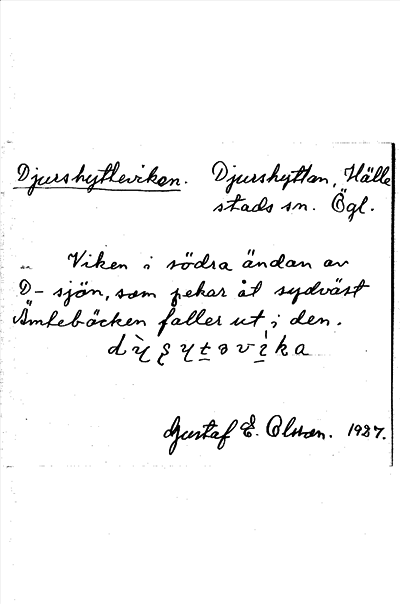 Djurshyttevikan. Djurshyttan, Hälle
stads sn. Ögl.
Viken i södra ändan av
D- sjön, som pekar åt sydväst
Ämtebäcken faller ut i den.
Gustaf E. Olsson. 1927.